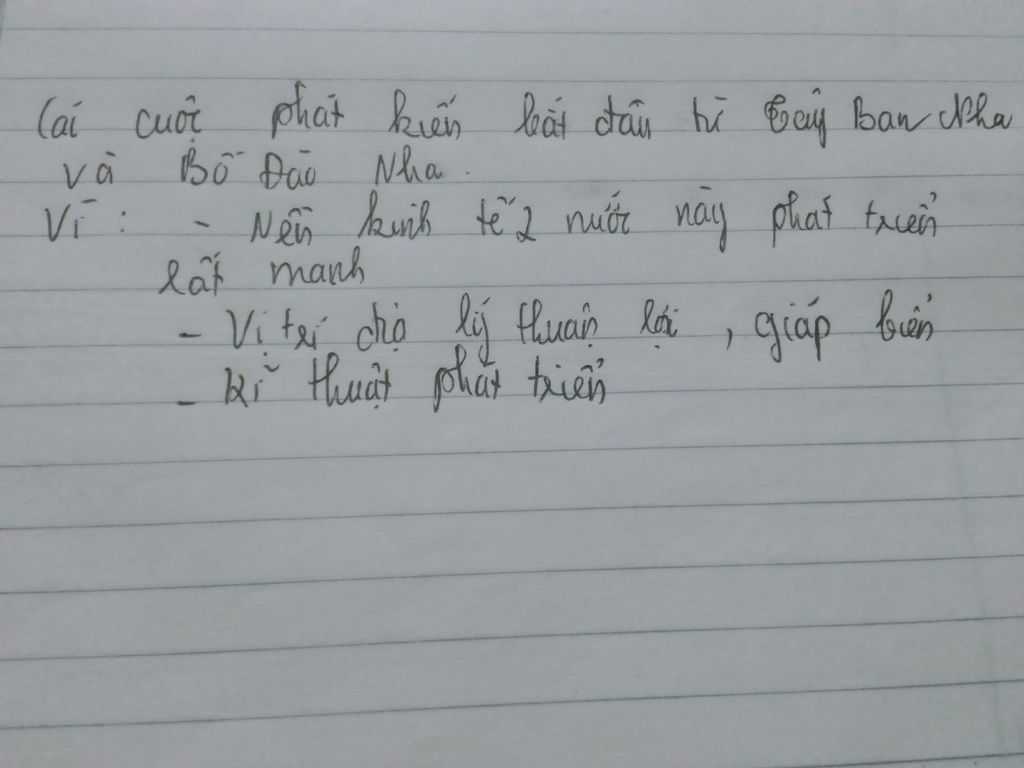 Các cuộc phát kiến bắt đầu từ Tây Ban Nha
và Bồ Đào Nha.
Vì : - Nền kinh tế 2 nước này phát triển
rất manh
- Vị trí địa lý thuận lợi, giáp biển
- Kĩ thuật phát triển